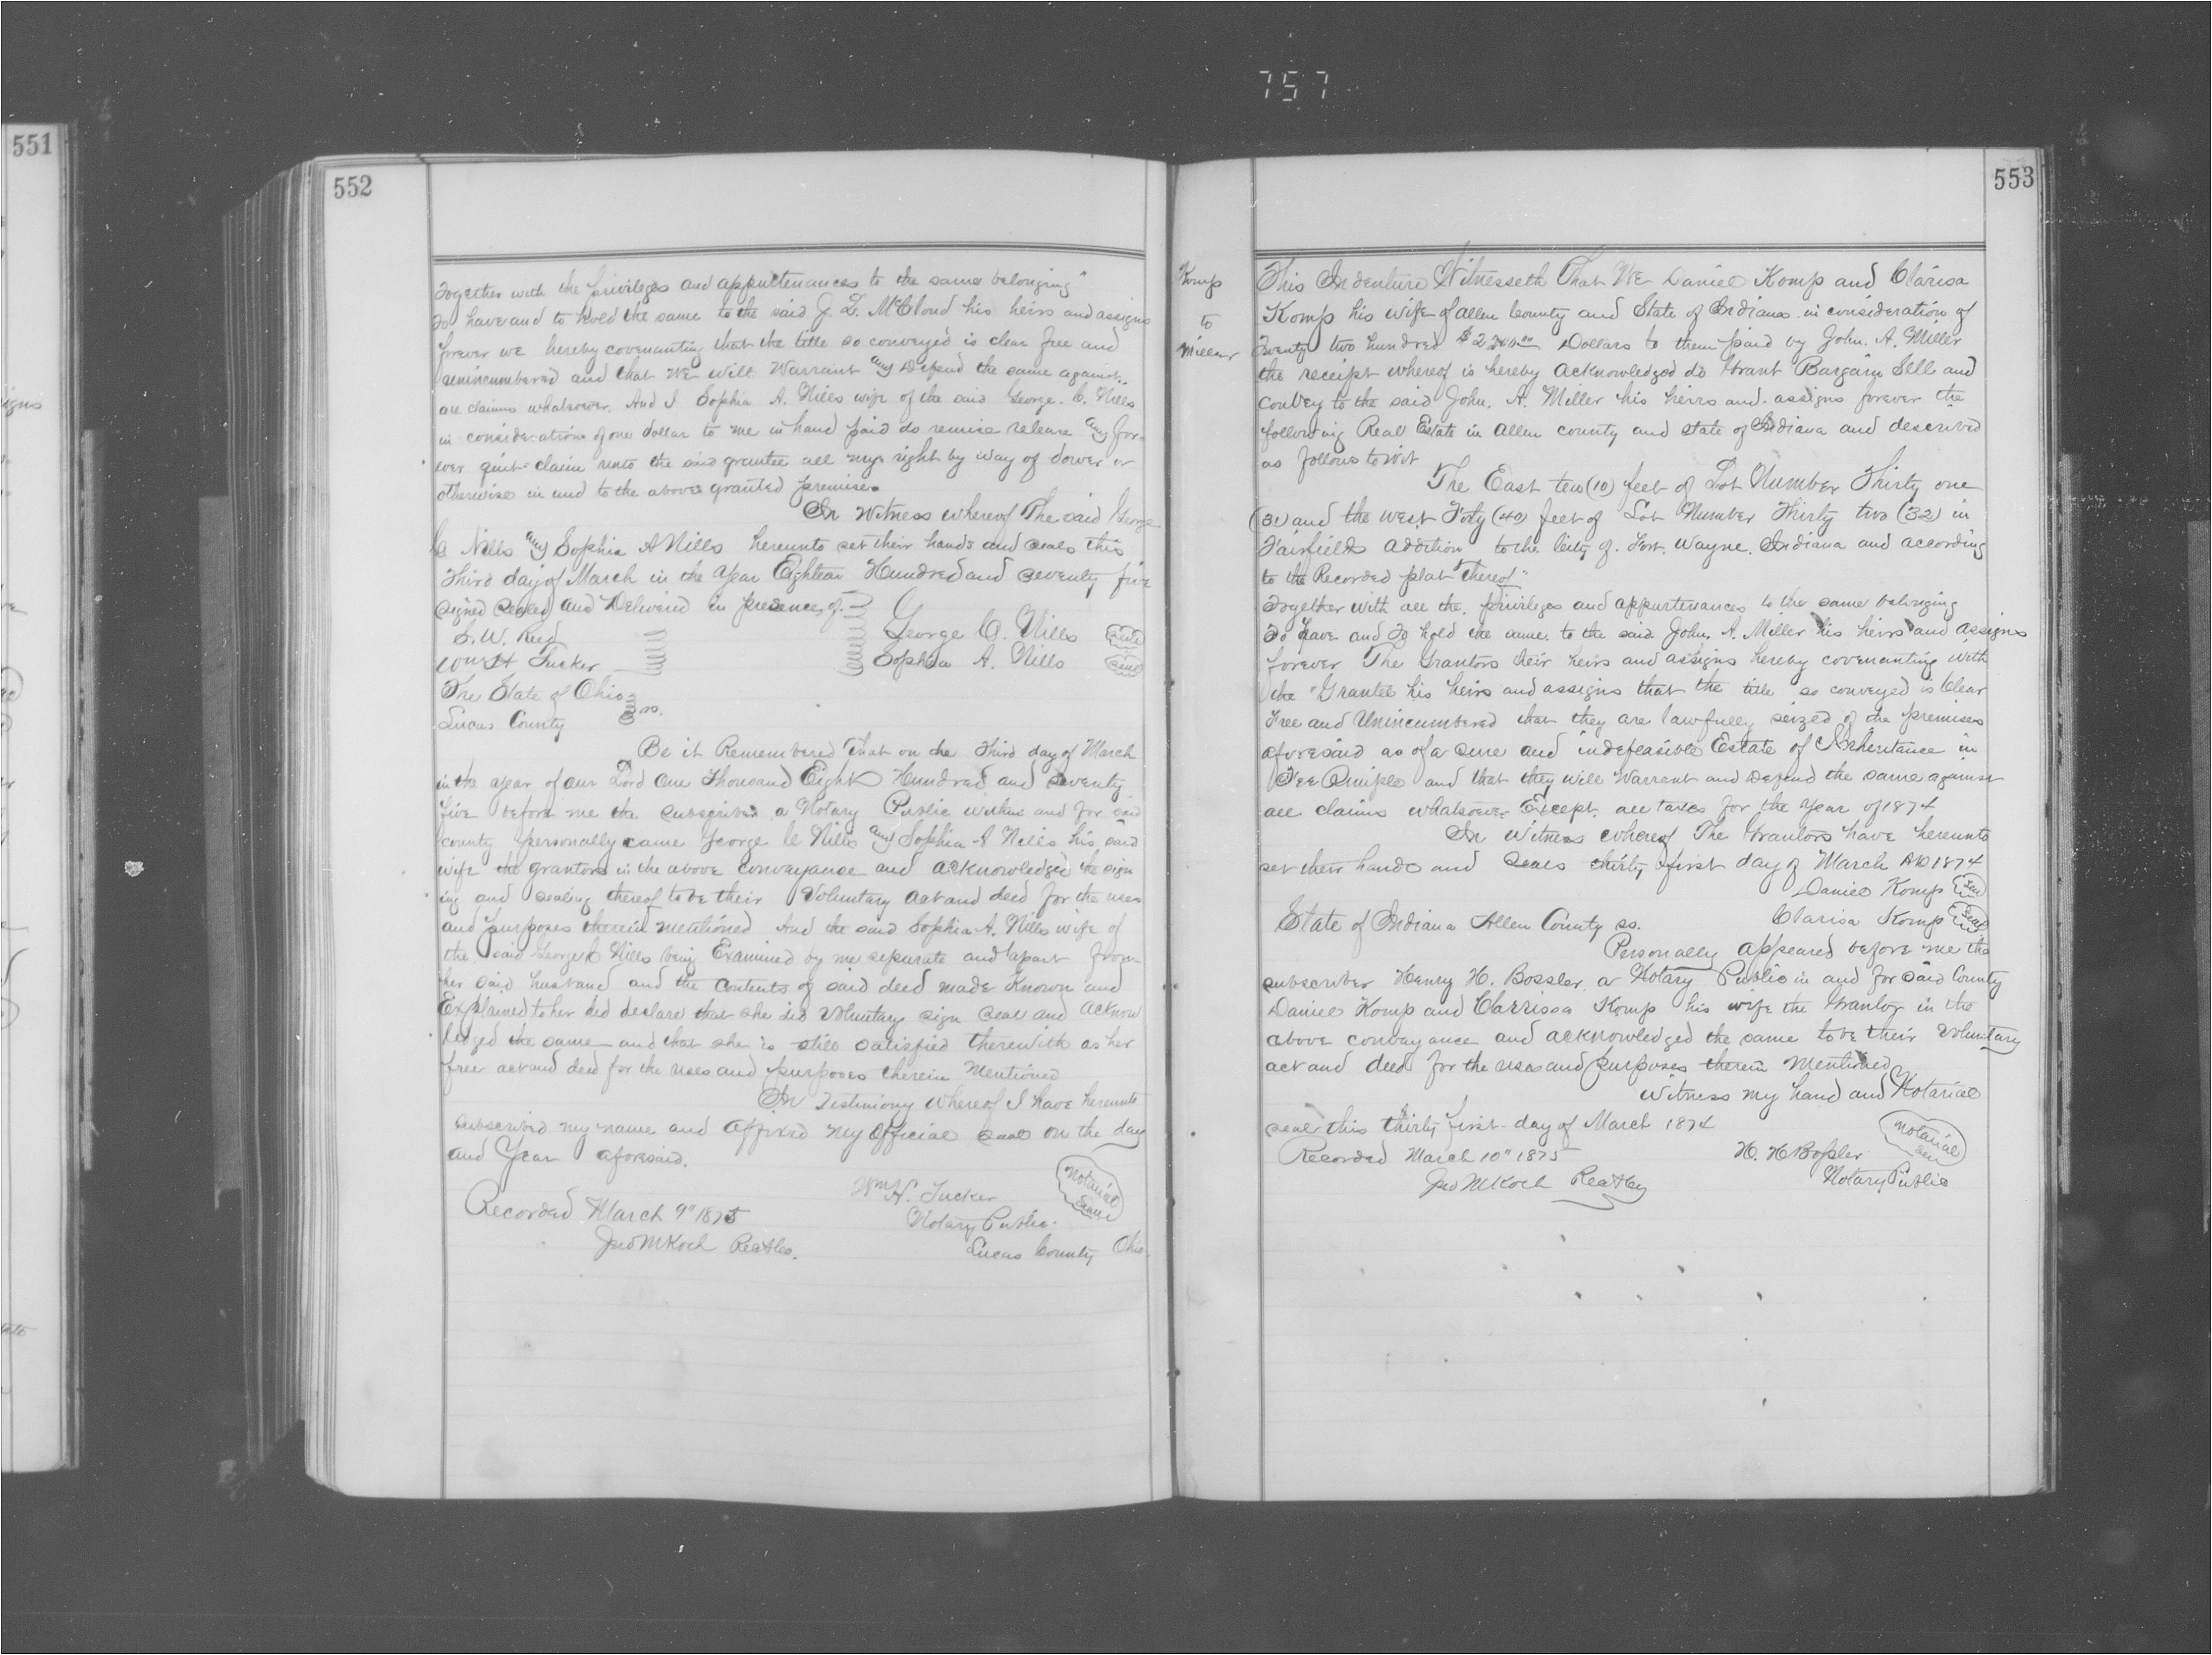 757
551
552
together with the privileges and appurtenances to the same belonging"
To have and to hold the same to the said J. D. McCloud his heirs and assigns
forever we hereby covenanting that the title so conveyed is clear free and
unincumbered and that We will Warrant and Defend the same against
all claims whatsoever. And I Sophia A. Nills wife of the said George. C. Nills
in consideration of one dollar to me in hand paid do remise release and for-
ever quit-claim unto the said grantee all my right by way of dower or
otherwise in and to the above granted premises
In Witness whereof The said George
C Nills and Sophia A Nills hereunto set their hands and seals this
Third day of March in the Year Eighteen Hundred and Seventy five
signed sealed and Delivered in presence of
S. W. Reed George C. Nills Seal
Wm H Tucker Sophia A. Nills Seal
The State of Ohio
Lucas County ss.
Be it Remembered That on the Third day of March
in the year of our Lord One Thousand Eight Hundred and Seventy
five before me the subscribed a Notary Public within and for said
county personally came George C Nills and Sophia A Nills his said
wife the grantors in the above conveyance and acknowledged the sign
ing and sealing thereof to be their Voluntary act and deed for the uses
and purposes therein mentioned And the said Sophia A. Nills wife of
the said George C Nills being Examined by me separate and apart from
her said husband and the contents of said deed made Known and
Explained to her did declare that she did Voluntary sign seal and acknow
ledged the same and that she is still satisfied therewith as her
free act and deed for the uses and purposes therein Mentioned
In Testimony whereof I have hereunto
subscribed my name and affixed my official seal on the day
and Year aforesaid.
Wm H. Tucker Notarial Seal
Recorded March 9" 1875 Notary Public.
Jno M Koch Lucas County Ohio.
553
Komp
to
Miller
This Indenture Witnesseth That We Daniel Komp and Clarisa
Komp his wife of Allen County and State of Indiana in consideration of
Twenty two hundred Dollars to them paid by John. A. Miller
the receipt whereof is hereby acknowledged do Grant Bargain Sell and
Convey to the said John. A. Miller his heirs and assigns forever the
following Real Estate in Allen county and state of Indiana and described
as follows to wit
The East ten (10) feet of Lot Number Thirty one
(31) and the west Forty (40) feet of Lot Number Thirty two (32) in
Fairfields addition to the City of. Fort. Wayne. Indiana and according
to the Recorded plat thereof"
Together with all the. privileges and appurtenances to the same belonging
To have and To hold the same to the said John. A. Miller his heirs and assigns
forever The Grantors their heirs and assigns hereby covenanting with
the Grantee his heirs and assigns that the title so conveyed is Clear
Free and Unincumbered that they are lawfully seized of the premises
aforesaid as of a sure and indefeasible Estate of Inheritance in
Fee Simple and that they will Warrant and Defend the same against
all claims whatsoever Except. all taxes for the year of 1874
In Witness whereof The Grantors have hereunto
set their hands and Seals thirty first day of March AD 1874
Daniel Komp Seal
State of Indiana Allen County ss. Clarisa Komp Seal
Personally appeared before me the
subscriber Henry H. Bossler a Notary Public in and for said County
Daniel Komp and Clarrissa Komp his wife the Grantor in the
above conveyance and acknowledged the same to be their Voluntary
act and deed for the uses and purposes therein Mentioned
Witness my hand and Notarial
seal this thirty first day of March 1874 Notarial Seal
Recorded March 10" 1875 H. H Bossler
Jno M Koch Notary Public